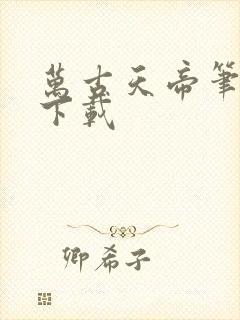 萬古天帝筆
下載
卿希子